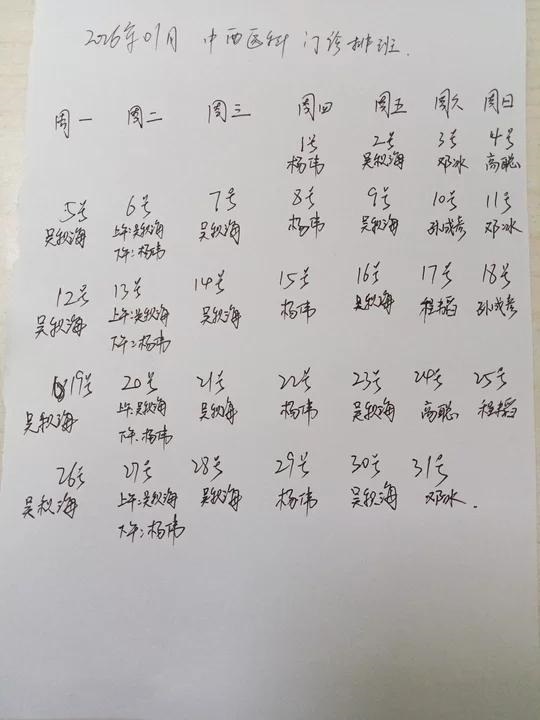 2026年01月 中西医科 门诊排班.
周一 周二 周三 周四 周五 周六 周日
1号 2号 3号 4号
杨玮 吴秋海 邓冰 高聪
5号 6号 7号 8号 9号 10号 11号
吴秋海 上午:吴秋海 吴秋海 杨玮 吴秋海 孙成彦 邓冰
下午:杨玮
12号 13号 14号 15号 16号 17号 18号
吴秋海 上午:吴秋海 吴秋海 杨玮 吴秋海 程韬 孙成彦
下午:杨玮
19号 20号 21号 22号 23号 24号 25号
吴秋海 上午:吴秋海 吴秋海 杨玮 吴秋海 高聪 程韬
下午:杨玮
26号 27号 28号 29号 30号 31号
吴秋海 上午:吴秋海 吴秋海 杨玮 吴秋海 邓冰.
下午:杨玮